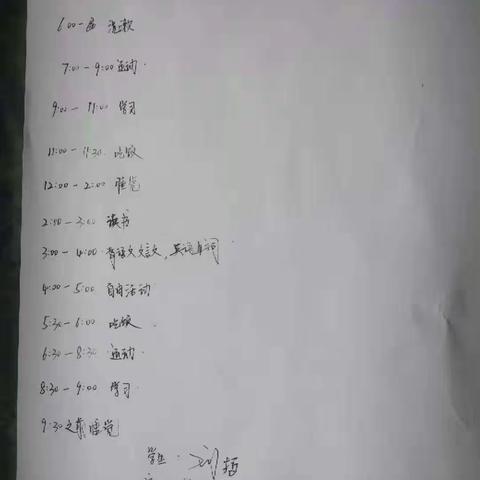 6:00 - 洗漱
7:00 - 9:00 运动.
9:00 - 11:00 学习
11:00 - 11:30. 吃饭
12:00 - 2:00 睡觉
2:00 - 3:00 读书
3:00 - 4:00 背语文文言文，英语单词
4:00 - 5:00 自由活动
5:30 - 6:00 吃饭.
6:30 - 8:30 运动.
8:30 - 9:00 学习.
9:30 之前 睡觉
学生: 刘